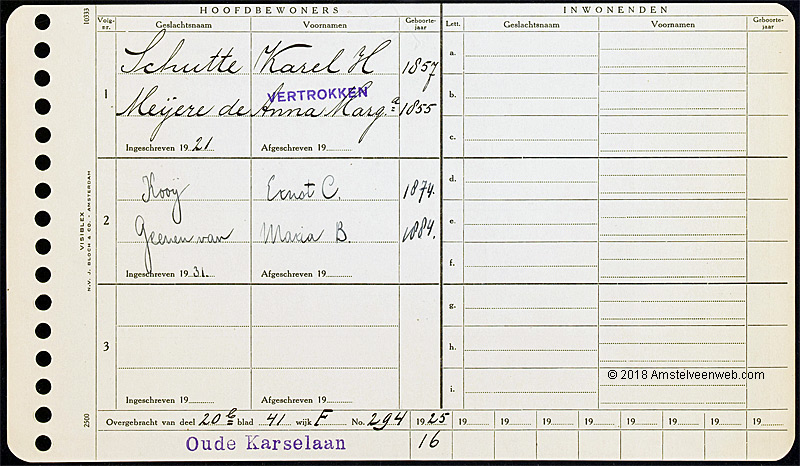 HOOFDBEWONERS
INWONENDEN
Volg-nr. Geslachtsnaam Voornamen Geboorte-jaar
Lett. Geslachtsnaam Voornamen Geboorte-jaar
10333
1
Schutte Karel H 1857
VERTROKKEN
Meijere de Anna Marg.a 1855
Ingeschreven 19 21. Afgeschreven 19
2
Kooÿ Ernst C. 1874.
Geenen van Maria B. 1884.
Ingeschreven 19 31. Afgeschreven 19
3
Ingeschreven 19 Afgeschreven 19
a.
b.
c.
d.
e.
f.
g.
h.
i.
VISIBLEX
N.V. J. BLOCH & CO. - AMSTERDAM
2500
© 2018 Amstelveenweb.com
Overgebracht van deel 20 b blad 41 wijk F No. 294 19 25 19 19 19 19 19 19 19 19
Oude Karselaan 16